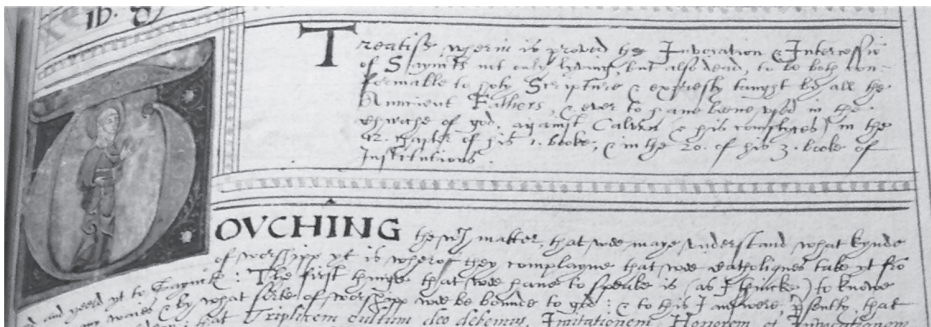 Treatise wherin is proved the Invocation & Intercessio
of Saynts not only lyving, but also dead, to be both con-
formable to holy Scripture & expresly taught by all the
Auncient Fathers & ever to have bene used in the
of god, against Calvin & his complices in the
of his 1. booke, & in the 20. of his 3. booke of
Institutions.
TOVCHING this matter, that wee maye understand what kynde
of worshipp yt is wherof they complayne that wee Catholiques take yt fro
and yeeld yt to Saynts: The first thinge that wee have to speake is (as I thincke) to knowe
waies & by what sortes of worshipp wee be bounde to god: & to his I answere, that
that Triplicem cultum deo debemus, Imitationem, Honorem et Invocationem